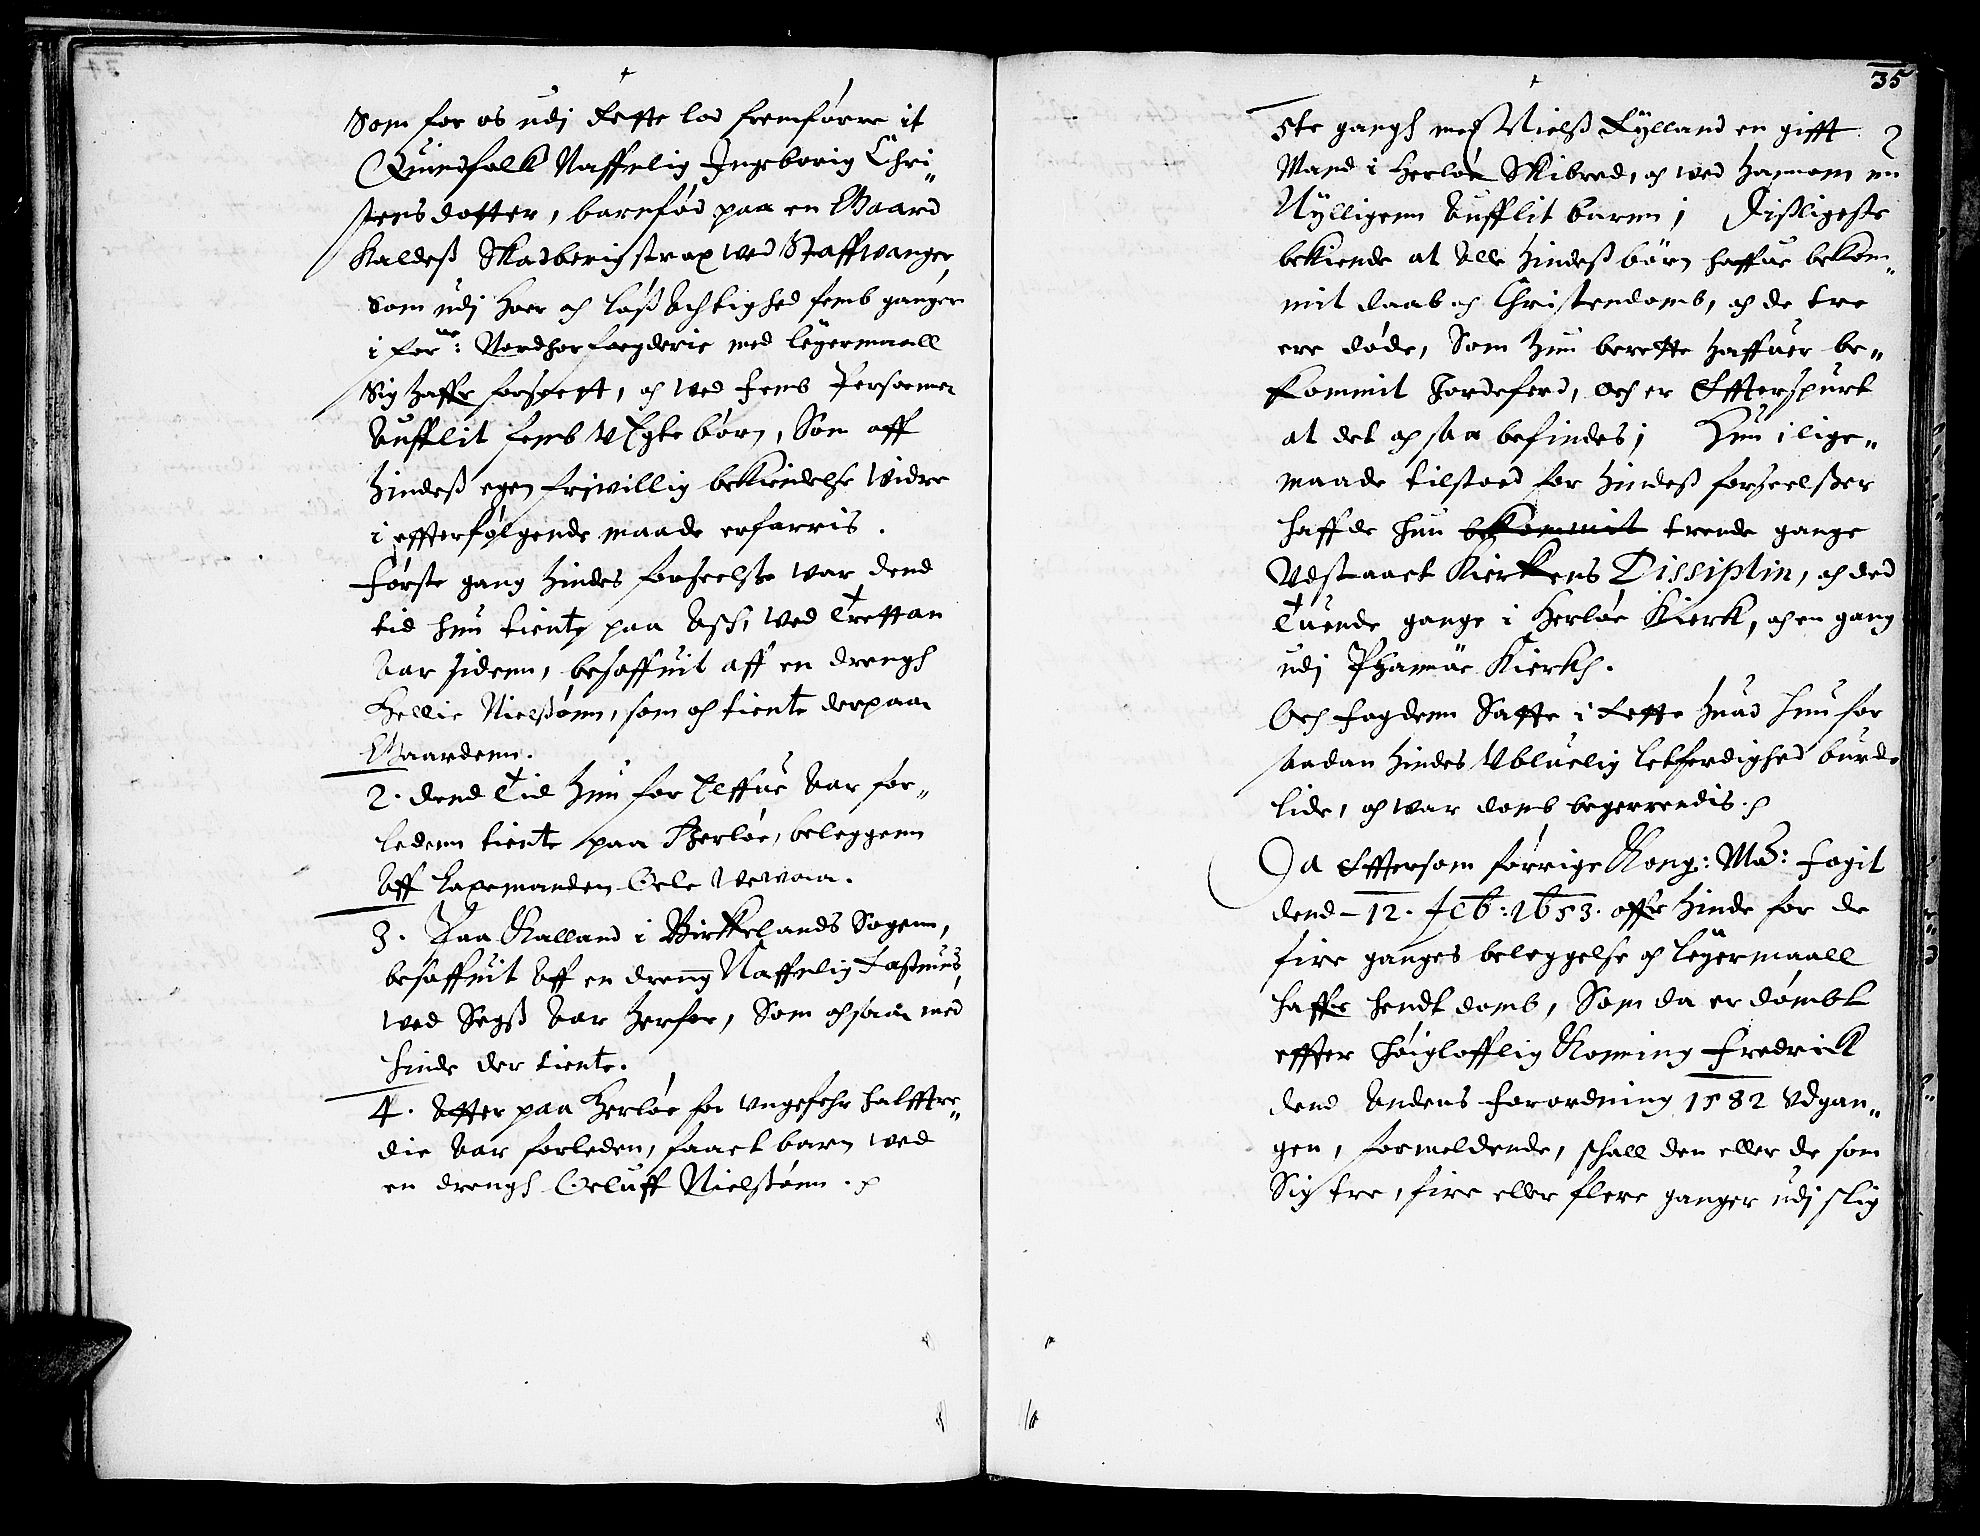 Som for os udj Rette lod fremførre it
Quindfolk Naffnlig Ingeborig Chri„
stensdotter, barnfød paa en Gaard
Kaldeß Skadberig strax ved Staffwanger,
Som udj Hoer och Løßachtighed femb ganger
i forne: Nordhor fogderie med leyermaall
Sig haffr forseett, och ved femb Persoener
Aufflit femb uEgte børn, Som aff
hindeß egen friwillig bekiendelse Widre
i effterfølgende maade erfarris.
Første gang hindes forseelse war dend
tid hun tiente paa Ask, wed Trettan
Aar siden, besoffuit aff en drengh
Hellie Nielßønn, som och tiente derpaa
Gaardenn.
2. dend Tid hun for Elffue Aar for„
ledenn tiente paa Herløe, beleggenn
Aff Lapemanden Oele Vewaa.
3. Paa Kalland i Birkkelands Sogenn,
besoffuit Aff en dreng Naffnlig Rasmus,
wed Segß Aar herfor, Som och saa med
hinde der tiente.
4. Atter paa Herløe for ungefehr halfftre„
die Aar forleden, faaet barn wed
en drengh Oeluff Nielßønn.
35
5te gangh med Nielß Rylland en gifft
Mand i Herløe Skibred, och wed hannom nu
Nylligenn Aufflit barnn; Dißligeste
bekiende at Alle hindeß børn haffue bekom„
mit daab och Christendomb, och de tre
ere døde, Som hun berette haffuer be„
kommit Jordeferd, och er Effterspurt
at det och saa befindes; Hun i lige„
maade tilstoed for hindeß forseelßer
haffde hun bekommit trende gange
Udstaaet Kierkens Dissiplin, och ded
Tuende gange i Herløe Kierk, och en gang
udj Hammer Kierkh.
Och fogdenn Satte i Rette huad hun for
saadan hindes Ubluelig letferdighed burde
lide, och war domb begerrendis.
Da Efftersom førrige Kong: Ma: fogit
dend 12. feb: 1653. offr hinde for de
fire ganges beleggelse och leyermaall
haffr hendt domb, Som da er dømbt
effter høigloffllig Konning Fredrick
dend Andens forordning 1582 Udgan„
gen, formeldende, schall den eller de som
Sig tre, fire eller flere ganger udj slig